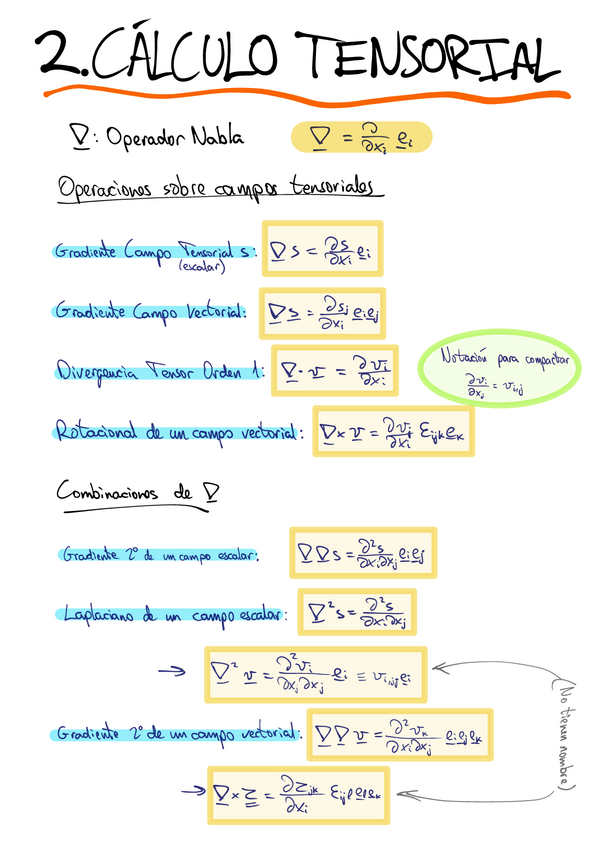 2. CÁLCULO TENSORIAL
∇: Operador Nabla ∇ = ∂/∂xᵢ eᵢ
Operaciones sobre campos tensoriales
Gradiente Campo Tensorial s: ∇ s = ∂s/∂xᵢ eᵢ
(escalar)
Gradiente Campo Vectorial: ∇ s = ∂sⱼ/∂xᵢ eᵢeⱼ
Divergencia Tensor Orden 1: ∇ · v = ∂vᵢ/∂xᵢ
Notación para compactar
∂vᵢ/∂xⱼ = vᵢ,ⱼ
Rotacional de un campo vectorial: ∇ x v = ∂vⱼ/∂xᵢ εᵢⱼₖeₖ
Combinaciones de ∇
Gradiente 2º de un campo escalar: ∇ ∇ s = ∂²s/∂xᵢ∂xⱼ eᵢeⱼ
Laplaciano de un campo escalar: ∇²s = ∂²s/∂xᵢ∂xⱼ
→ ∇² v = ∂²vᵢ/∂xⱼ∂xⱼ eᵢ ≡ vᵢ,ⱼⱼeᵢ
(No tienen nombre)
Gradiente 2º de un campo vectorial: ∇ ∇ v = ∂²vₖ/∂xᵢ∂xⱼ eᵢeⱼeₖ
→ ∇ x Z = ∂Zⱼₖ/∂xᵢ εᵢⱼₗ eₗeₖ